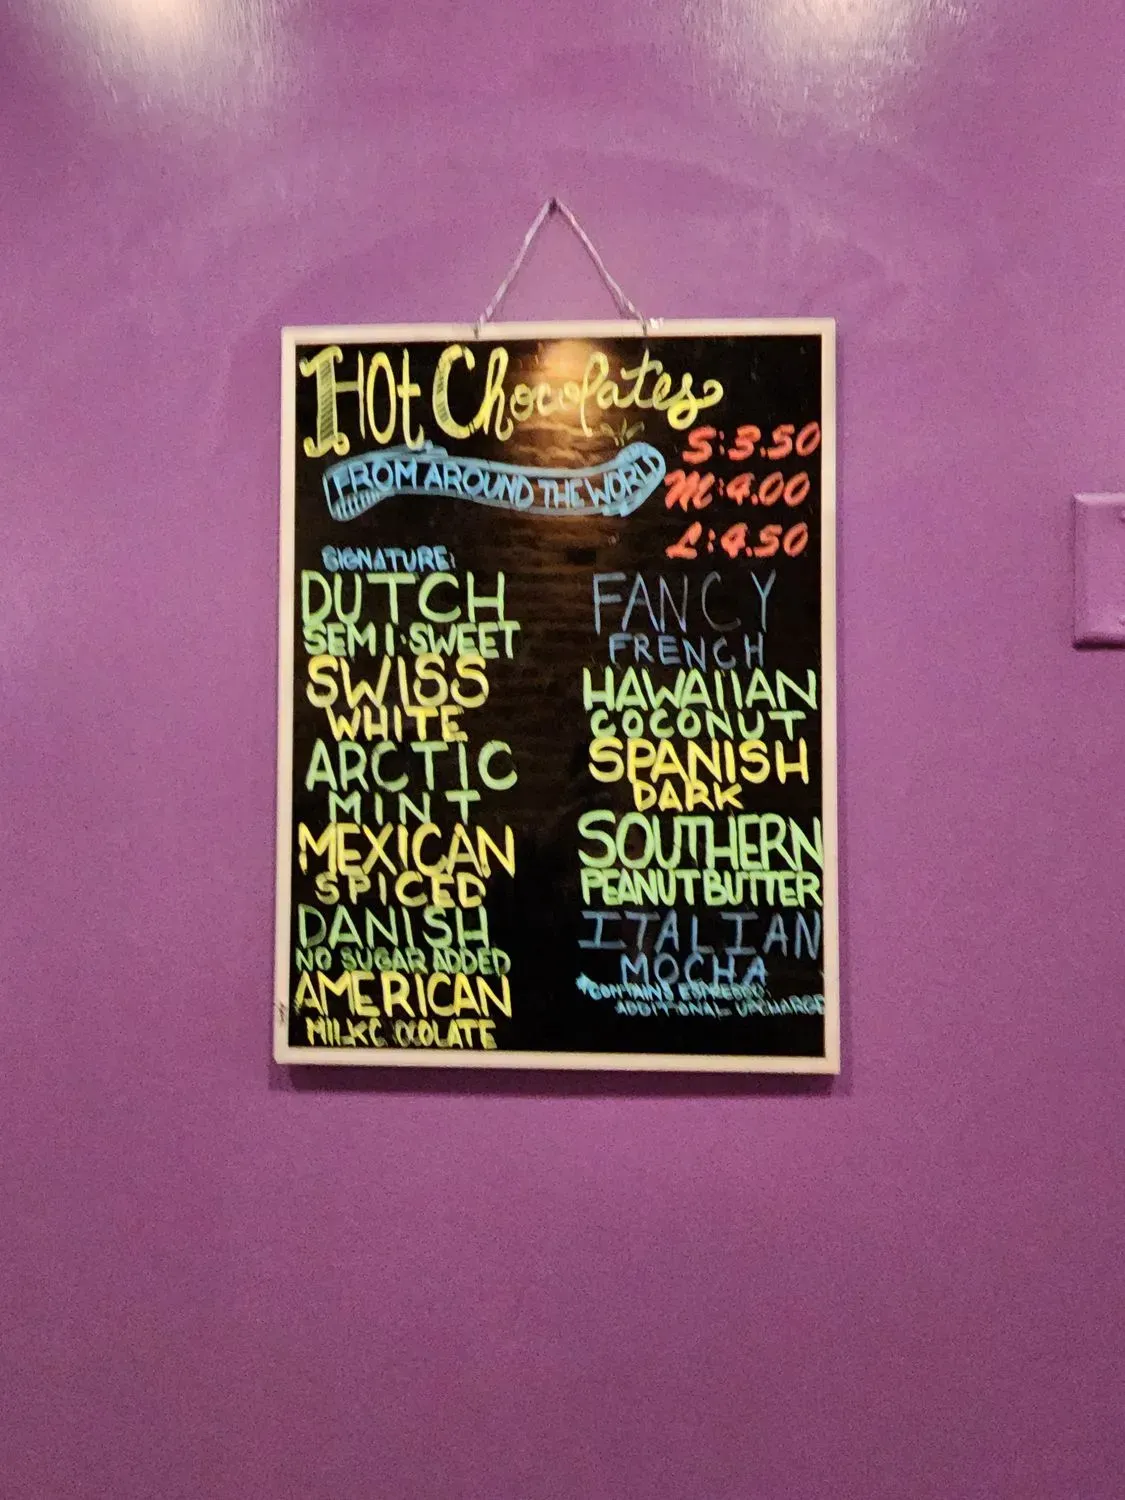 Hot Chocolates
FROM AROUND THE WORLD
S:3.50
M:4.00
L:4.50
SIGNATURE:
DUTCH
SEMI-SWEET
SWISS
WHITE
ARCTIC
MINT
MEXICAN
SPICED
DANISH
NO SUGAR ADDED
AMERICAN
MILKC OCOLATE
FANCY
FRENCH
HAWAIIAN
COCONUT
SPANISH
DARK
SOUTHERN
PEANUT BUTTER
ITALIAN
MOCHA
*CONTAINS ESPRESSO,
ADDITIONAL UPCHARGE